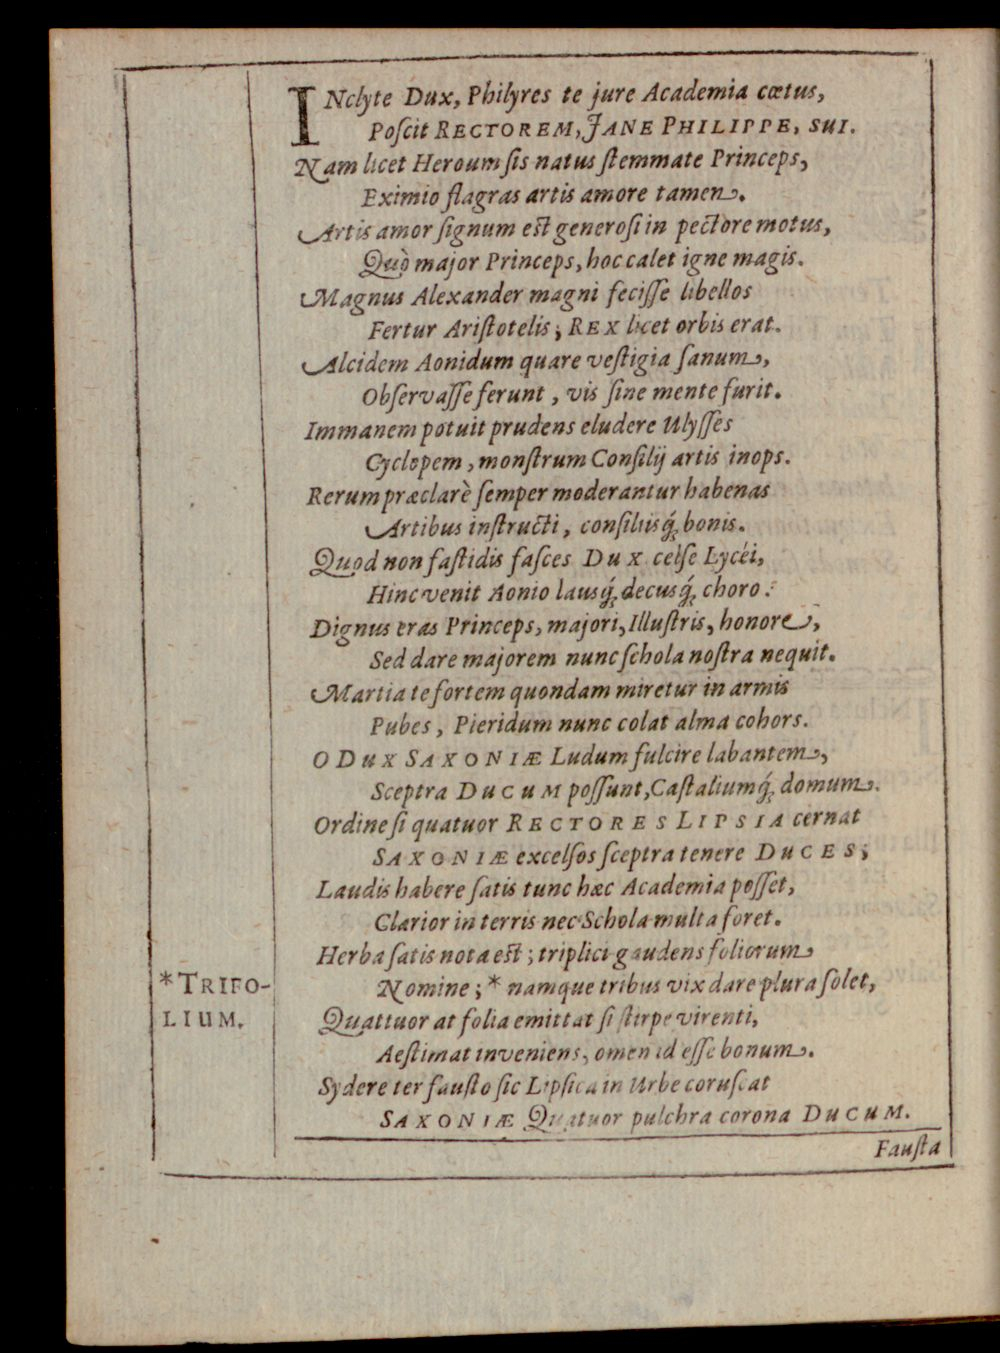 INclyte Dux, Philyres te jure Academia cœtus,
Poſcit RECTOREM, JANE PHILIPPE, SUI.
Nam licet Heroum ſis natus ſtemmate Princeps,
Eximio flagras artis amore tamen.
Artis amor ſignum eſt generoſi in pectore motus,
Quò major Princeps, hoc calet igne magis.
Magnus Alexander magni feciſſe libellos
Fertur Ariſtotelis; REX licet orbis erat.
Alcidem Aonidum quare veſtigia ſanum,
Obſervaſſe ferunt, vis ſine mente furit.
Immanem potuit prudens eludere Ulyſſes
Cyclopem, monſtrum Conſilij artis inops.
Rerum præclarè ſemper moderantur habenas
Artibus inſtructi, conſiliisq́; bonis.
Quod non faſtidis faſces DUX celſe Lycéi,
Hinc venit Aonio lausq́; decusq́; choro.
Dignus eras Princeps, majori, Illuſtris, honore,
Sed dare majorem nunc ſchola noſtra nequit.
Martia te fortem quondam miretur in armis
Pubes, Pieridum nunc colat alma cohors.
O DUX SAXONIÆ Ludum fulcire labantem,
Sceptra DUCUM poſſunt, Caſtaliumq́; domum.
Ordine ſi quatuor RECTORES LIPSIA cernat
SAXONIÆ excelſos ſceptra tenere DUCES;
Laudis habere ſatis tunc hæc Academia poſſet,
Clarior in terris nec Schola multa foret.
Herba ſatis nota eſt; triplici gaudens foliorum
*TRIFO-
Nomine; * namque tribus vix dare plura ſolet,
LIUM.
Quattuor at folia emittat ſi ſtirpe virenti,
Aeſtimat inveniens, omen id eſſe bonum.
Sydere ter fauſto ſic Lipſica in Urbe coruſcat
SAXONIÆ Quatuor pulchra corona DUCUM.
Fauſta